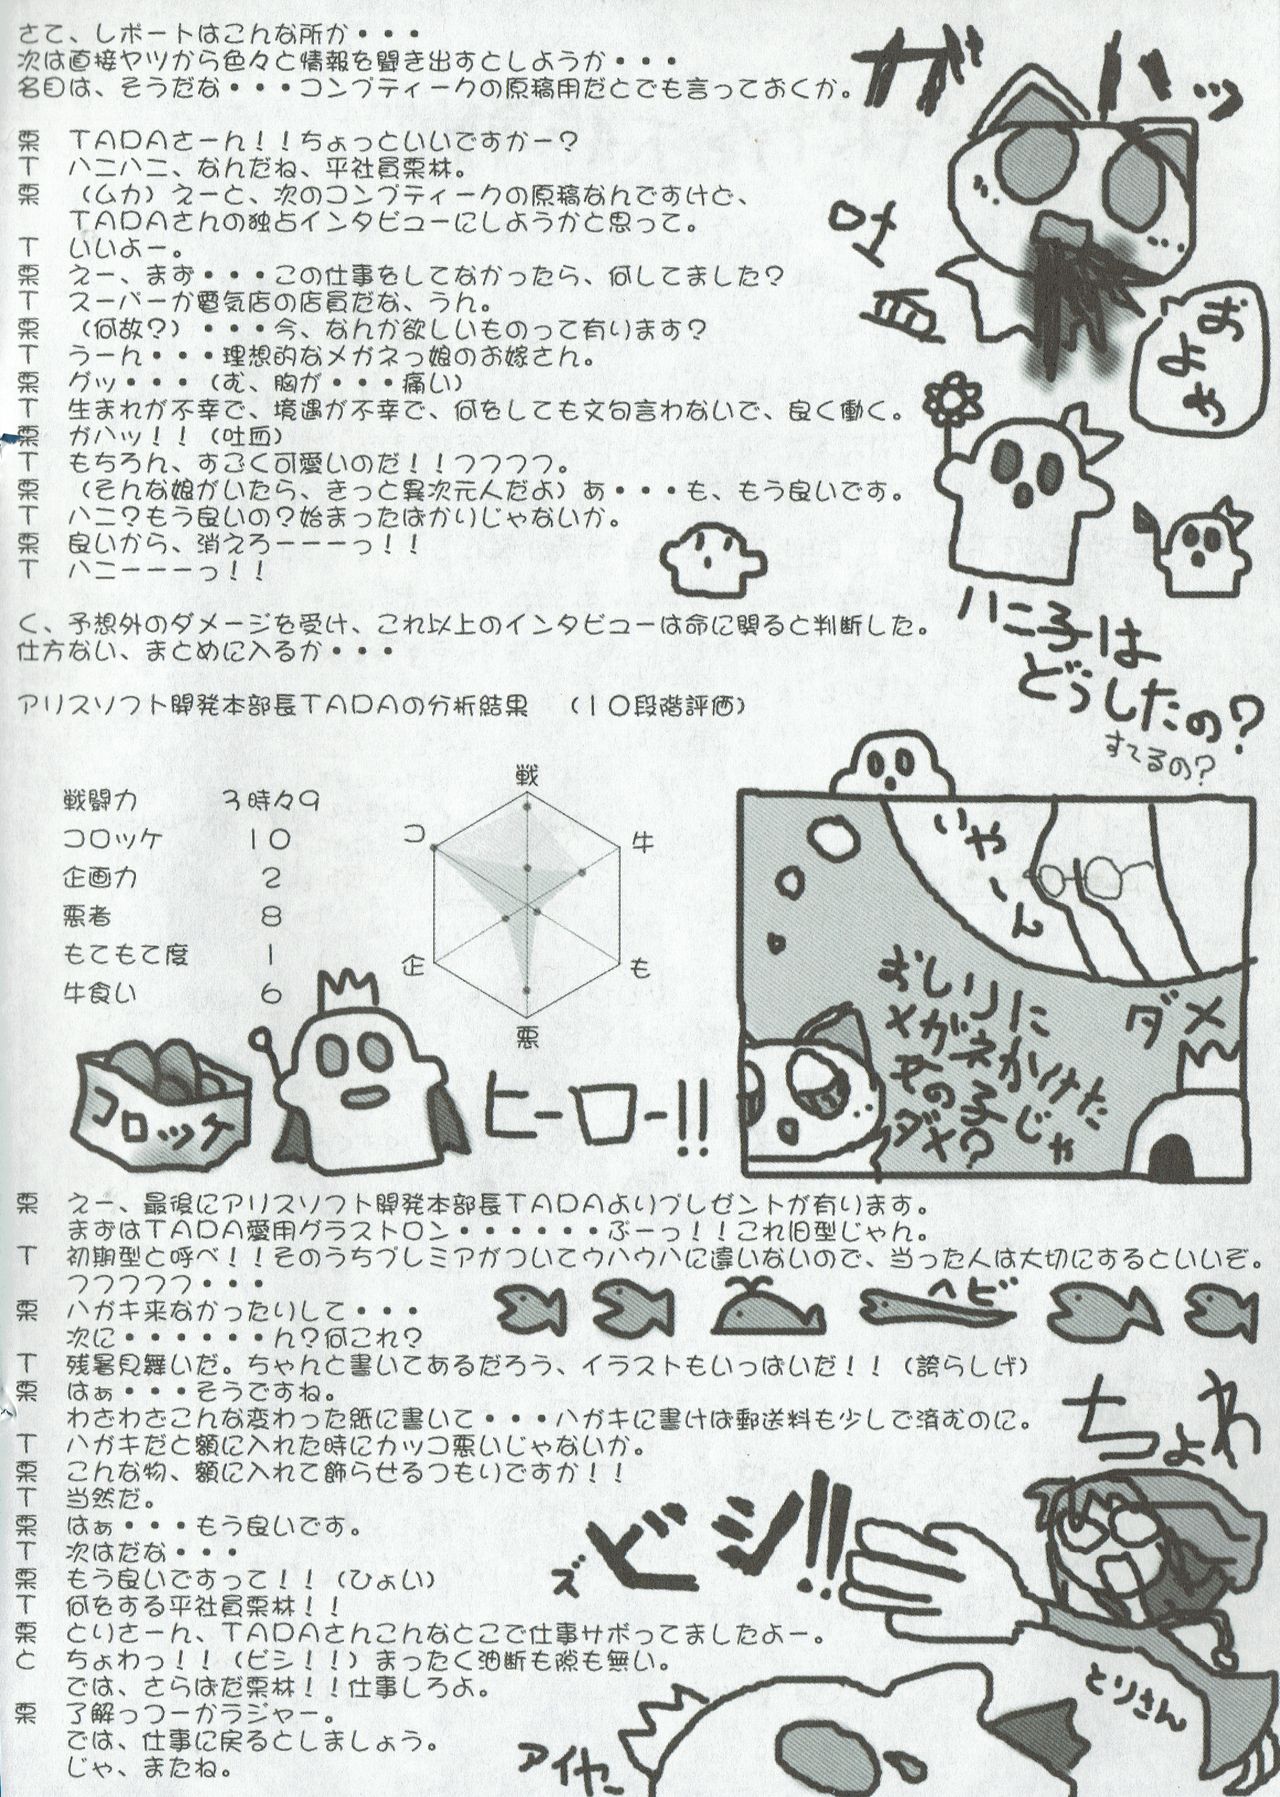 さて、レポートはこんな所か・・・
次は直接ヤツから色々と情報を聞き出すとしようか・・・
名目は、そうだな・・・コンプティークの原稿用だとでも言っておくか。
栗　ＴＡＤＡさーん！！ちょっといいですかー？
Ｔ　ハニハニ、なんだね、平社員栗林。
栗　（ムカ）えーと、次のコンプティークの原稿なんですけど、
ＴＡＤＡさんの独占インタビューにしようかと思って。
Ｔ　いいよー。
栗　えー、まず・・・この仕事をしてなかったら、何してました？
Ｔ　スーパーか電気店の店員だな、うん。
栗　（何故？）・・・今、なんか欲しいものって有ります？
Ｔ　うーん・・・理想的なメガネっ娘のお嫁さん。
栗　グッ・・・（む、胸が・・・痛い）
Ｔ　生まれが不幸で、境遇が不幸で、何をしても文句言わないで、良く働く。
栗　ガハッ！！（吐血）
Ｔ　もちろん、すごく可愛いのだ！！つつつつ。
栗　（そんな娘がいたら、きっと異次元人だよ）あ・・・も、もう良いです。
Ｔ　ハニ？もう良いの？始まったばかりじゃないか。
栗　良いから、消えろーーーっ！！
Ｔ　ハニーーーっ！！
く、予想外のダメージを受け、これ以上のインタビューは命に関ると判断した。
仕方ない、まとめに入るか・・・
ガハッ
吐血
およや
ハニ子は
どうしたの？
すてるの？
アリスソフト開発本部長ＴＡＤＡの分析結果　（１０段階評価）
戦闘力　３時々９
コロッケ　１０
企画力　２
悪者　８
もてもて度　１
牛食い　６
戦
牛
も
悪
企
コ
コロッケ
ヒーロー!!
いや〜ん
おしりに
メガネかけた
女の子じゃ
ダメ？
ダメ
栗　えー、最後にアリスソフト開発本部長ＴＡＤＡよりプレゼントが有ります。
まずはＴＡＤＡ愛用グラストロン・・・・・・ぶーっ！！これ旧型じゃん。
Ｔ　初期型と呼べ！！そのうちプレミアがついてウハウハに違いないので、当った人は大切にするといいぞ。
つつつつつ・・・
栗　ハガキ来なかったりして・・・
次に・・・・・・ん？何これ？
Ｔ　残暑見舞いだ。ちゃんと書いてあるだろう、イラストもいっぱいだ！！（誇らしげ）
栗　はぁ・・・そうですね。
わざわざこんな変わった紙に書いて・・・ハガキに書けば郵送料も少しで済むのに。
Ｔ　ハガキだと額に入れた時にカッコ悪いじゃないか。
栗　こんな物、額に入れて飾らせるつもりですか！！
Ｔ　当然だ。
栗　はぁ・・・もう良いです。
Ｔ　次はだな・・・
栗　もう良いですって！！（ひょい）
Ｔ　何をする平社員栗林！！
栗　とりさーん、ＴＡＤＡさんこんなとこで仕事サボってましたよー。
と　ちょわっ！！（ビシ！！）まったく油断も隙も無い。
では、さらばだ栗林！！仕事しろよ。
栗　了解っつーかラジャー。
では、仕事に戻るとしましょう。
じゃ、またね。
ヘビ
ちょわ
ズビシ!!
とりさん
アイヤー